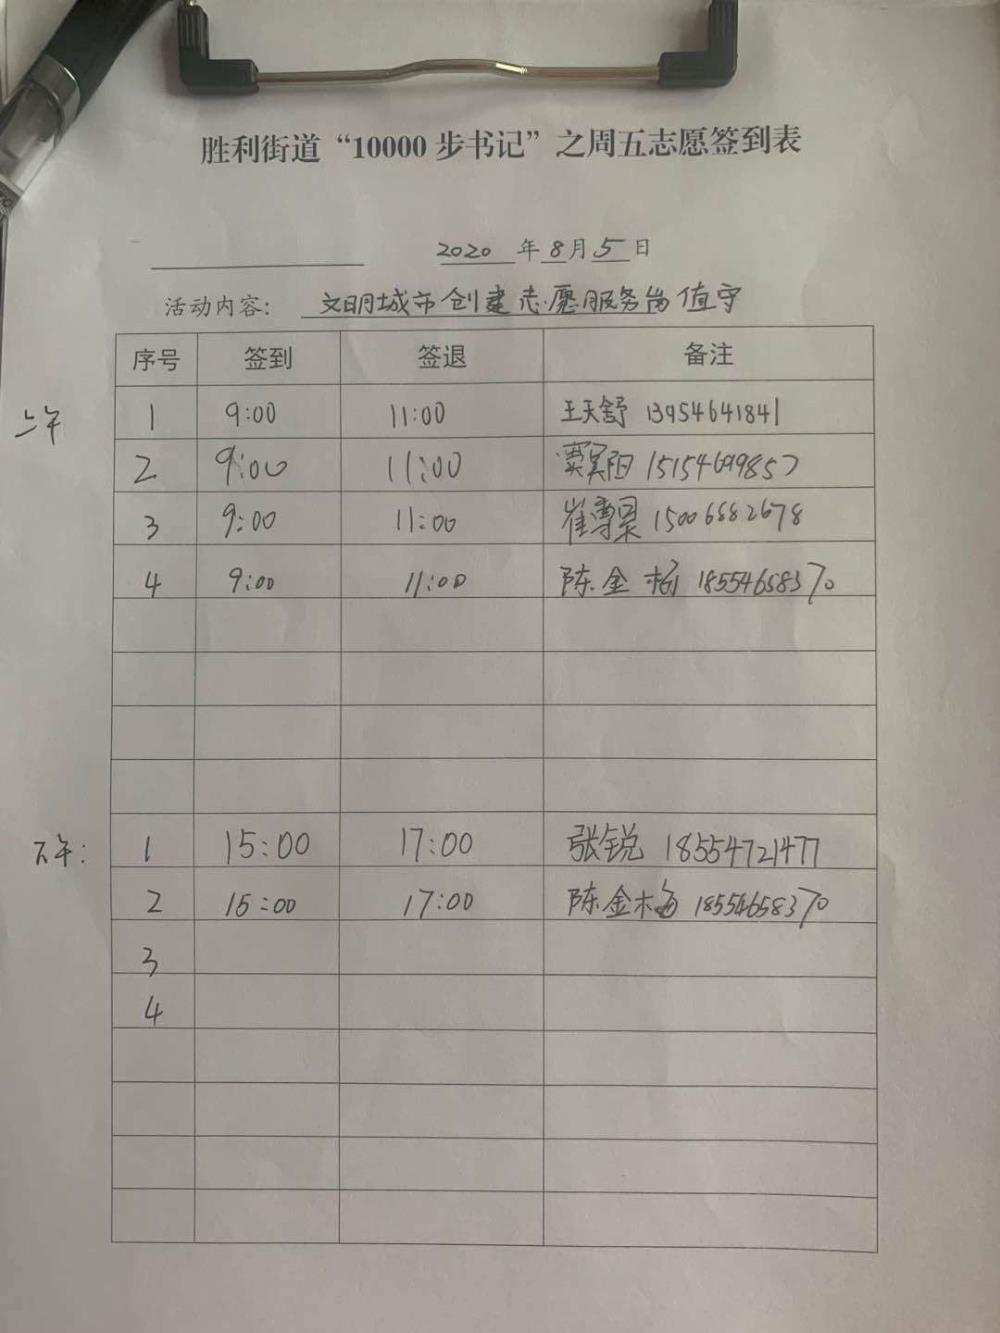 胜利街道“10000 步书记”之周五志愿签到表
2020 年 8 月 5 日
活动内容: 文明城市创建志愿服务岗值守
序号 签到 签退 备注
上午 1 9:00 11:00 王天舒 13954641841
2 9:00 11:00 阳 15154699857
3 9:00 11:00 崔 15006682678
4 9:00 11:00 陈金梅 18554658370
下午: 1 15:00 17:00 张锐 18554721477
2 15:00 17:00 陈金梅 18554658370
3
4